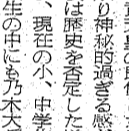 り神秘的過ぎる感
は歴史を否定した
、現在の小、中学
生の中にも乃木大